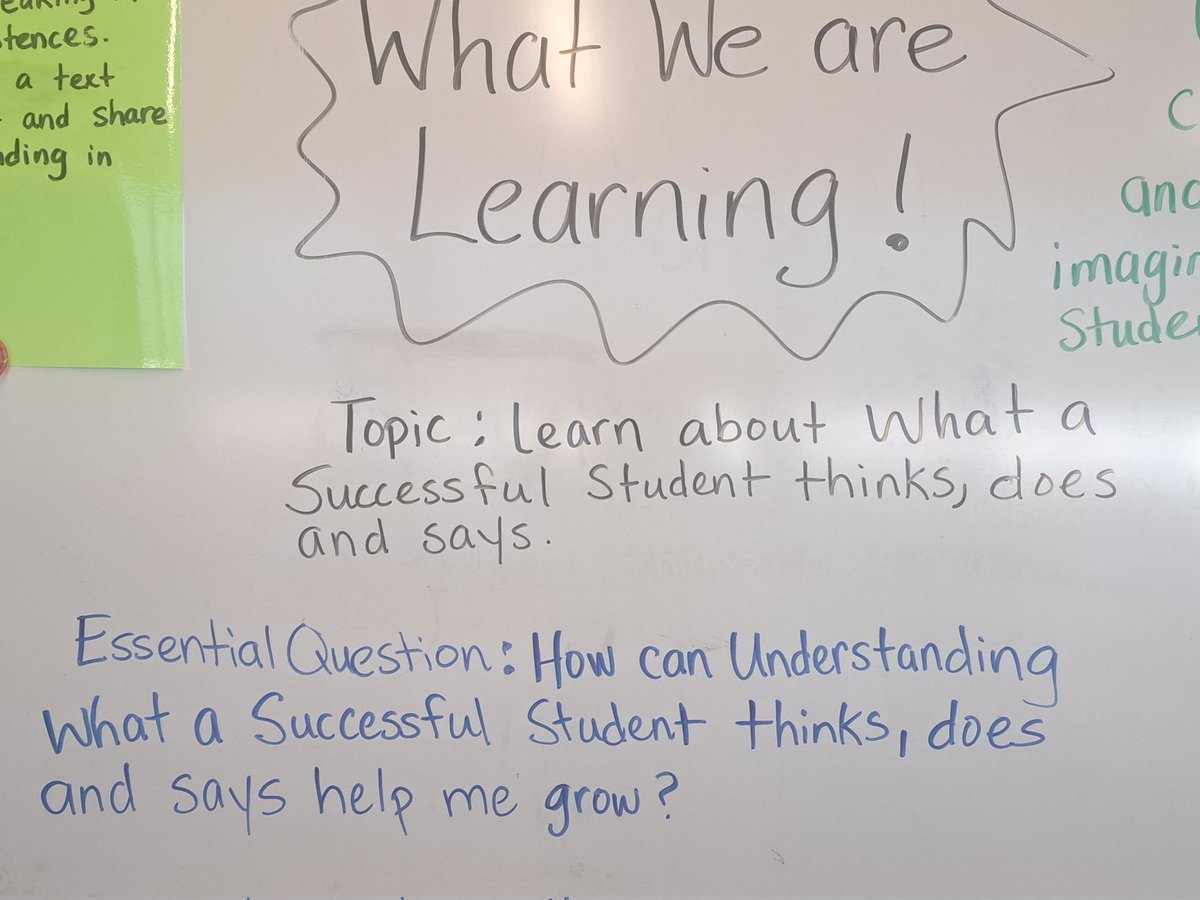 tences.
a text
and share
in
What We are
Learning!
Topic: Learn about What a
Successful Student thinks, does
and says.
Essential Question: How can Understanding
What a Successful Student thinks, does
and says help me grow?